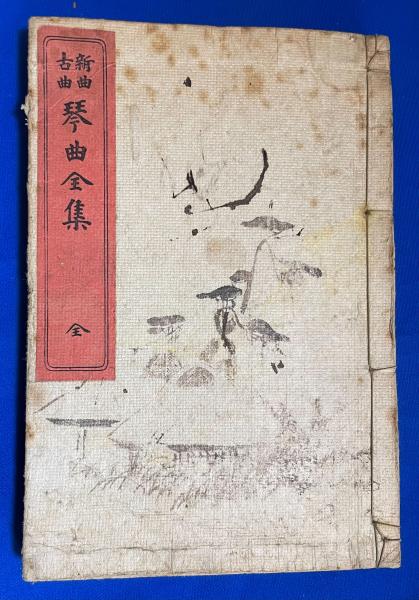 新曲
古曲
琴曲全集
全